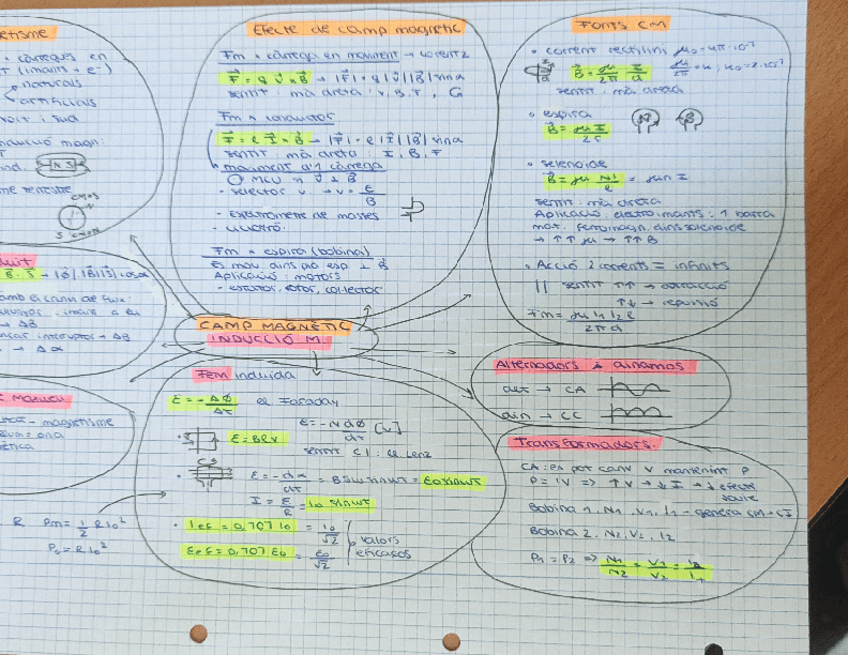 etisme
· càrregues en
(imants + e-)
naturals
artificials
nord i sud
inducció magn:
N S
me terrestre
S
Efecte de camp magnètic
Fm → càrrega en moviment → Lorentz
F = q v × B → |F| = q |v| |B| sinα
sentit: mà dreta: v, B, F
Fm → conductor
F = l I × B → |F| = l |I| |B| sinα
sentit mà dreta: I, B, F
moviment d'1 càrrega
MCU → v ⊥ B
- selector v → v = E/B
- Espectròmetre de masses
Fm → espira (bobina)
Aplicació: motors
- estator, rotor, col·lector
Fonts CM
· corrent rectilini μ₀ = 4π·10⁻⁷
B = μ/2π I/d
sentit: mà dreta
· espira
B = μI/2r
N S
· solenoide
B = μ NI/l = μnI
sentit: mà dreta
Aplicació: electroimants: 1 barra
mat. ferromagn. dins solenoide
→ ↑↑ μ → ↑↑ B
· Acció 2 corrents = infinits
|| sentit ↑↑ → atracció
↑↓ → repulsió
Fm = μ I₁ I₂ l / 2πd
CAMP MAGNÈTIC
INDUCCIÓ M.
B · S → |Φ| |B||S| cosα
→ ΔB
interruptor → ΔB
→ Δα
Maxwell
- magnetisme
Pm = 1/2 R I₀²
P₀ = R I₀²
Fem induïda
ε = -ΔΦ/Δt
Faraday
ε = -N dΦ/dt [V]
ε = Blv
sentit CI: Lenz
ε = -dΦ/dt = BSω sinωt = ε₀ sinωt
I = ε/R = I₀ sinωt
· Ief = 0,707 I₀ = I₀/√2
εef = 0,707 ε₀ = ε₀/√2
valors
eficaços
Alternadors i dinamos
alt → CA
din → CC
Transformadors.
CA: es pot canv V mantenint P
P = IV => ↑V → ↓I → ↓ efecte
Joule
Bobina 1: N₁, V₁, I₁ → genera CM → CI
Bobina 2: N₂, V₂, I₂
P₁ = P₂ => N₁/N₂ = V₁/V₂ = I₂/I₁